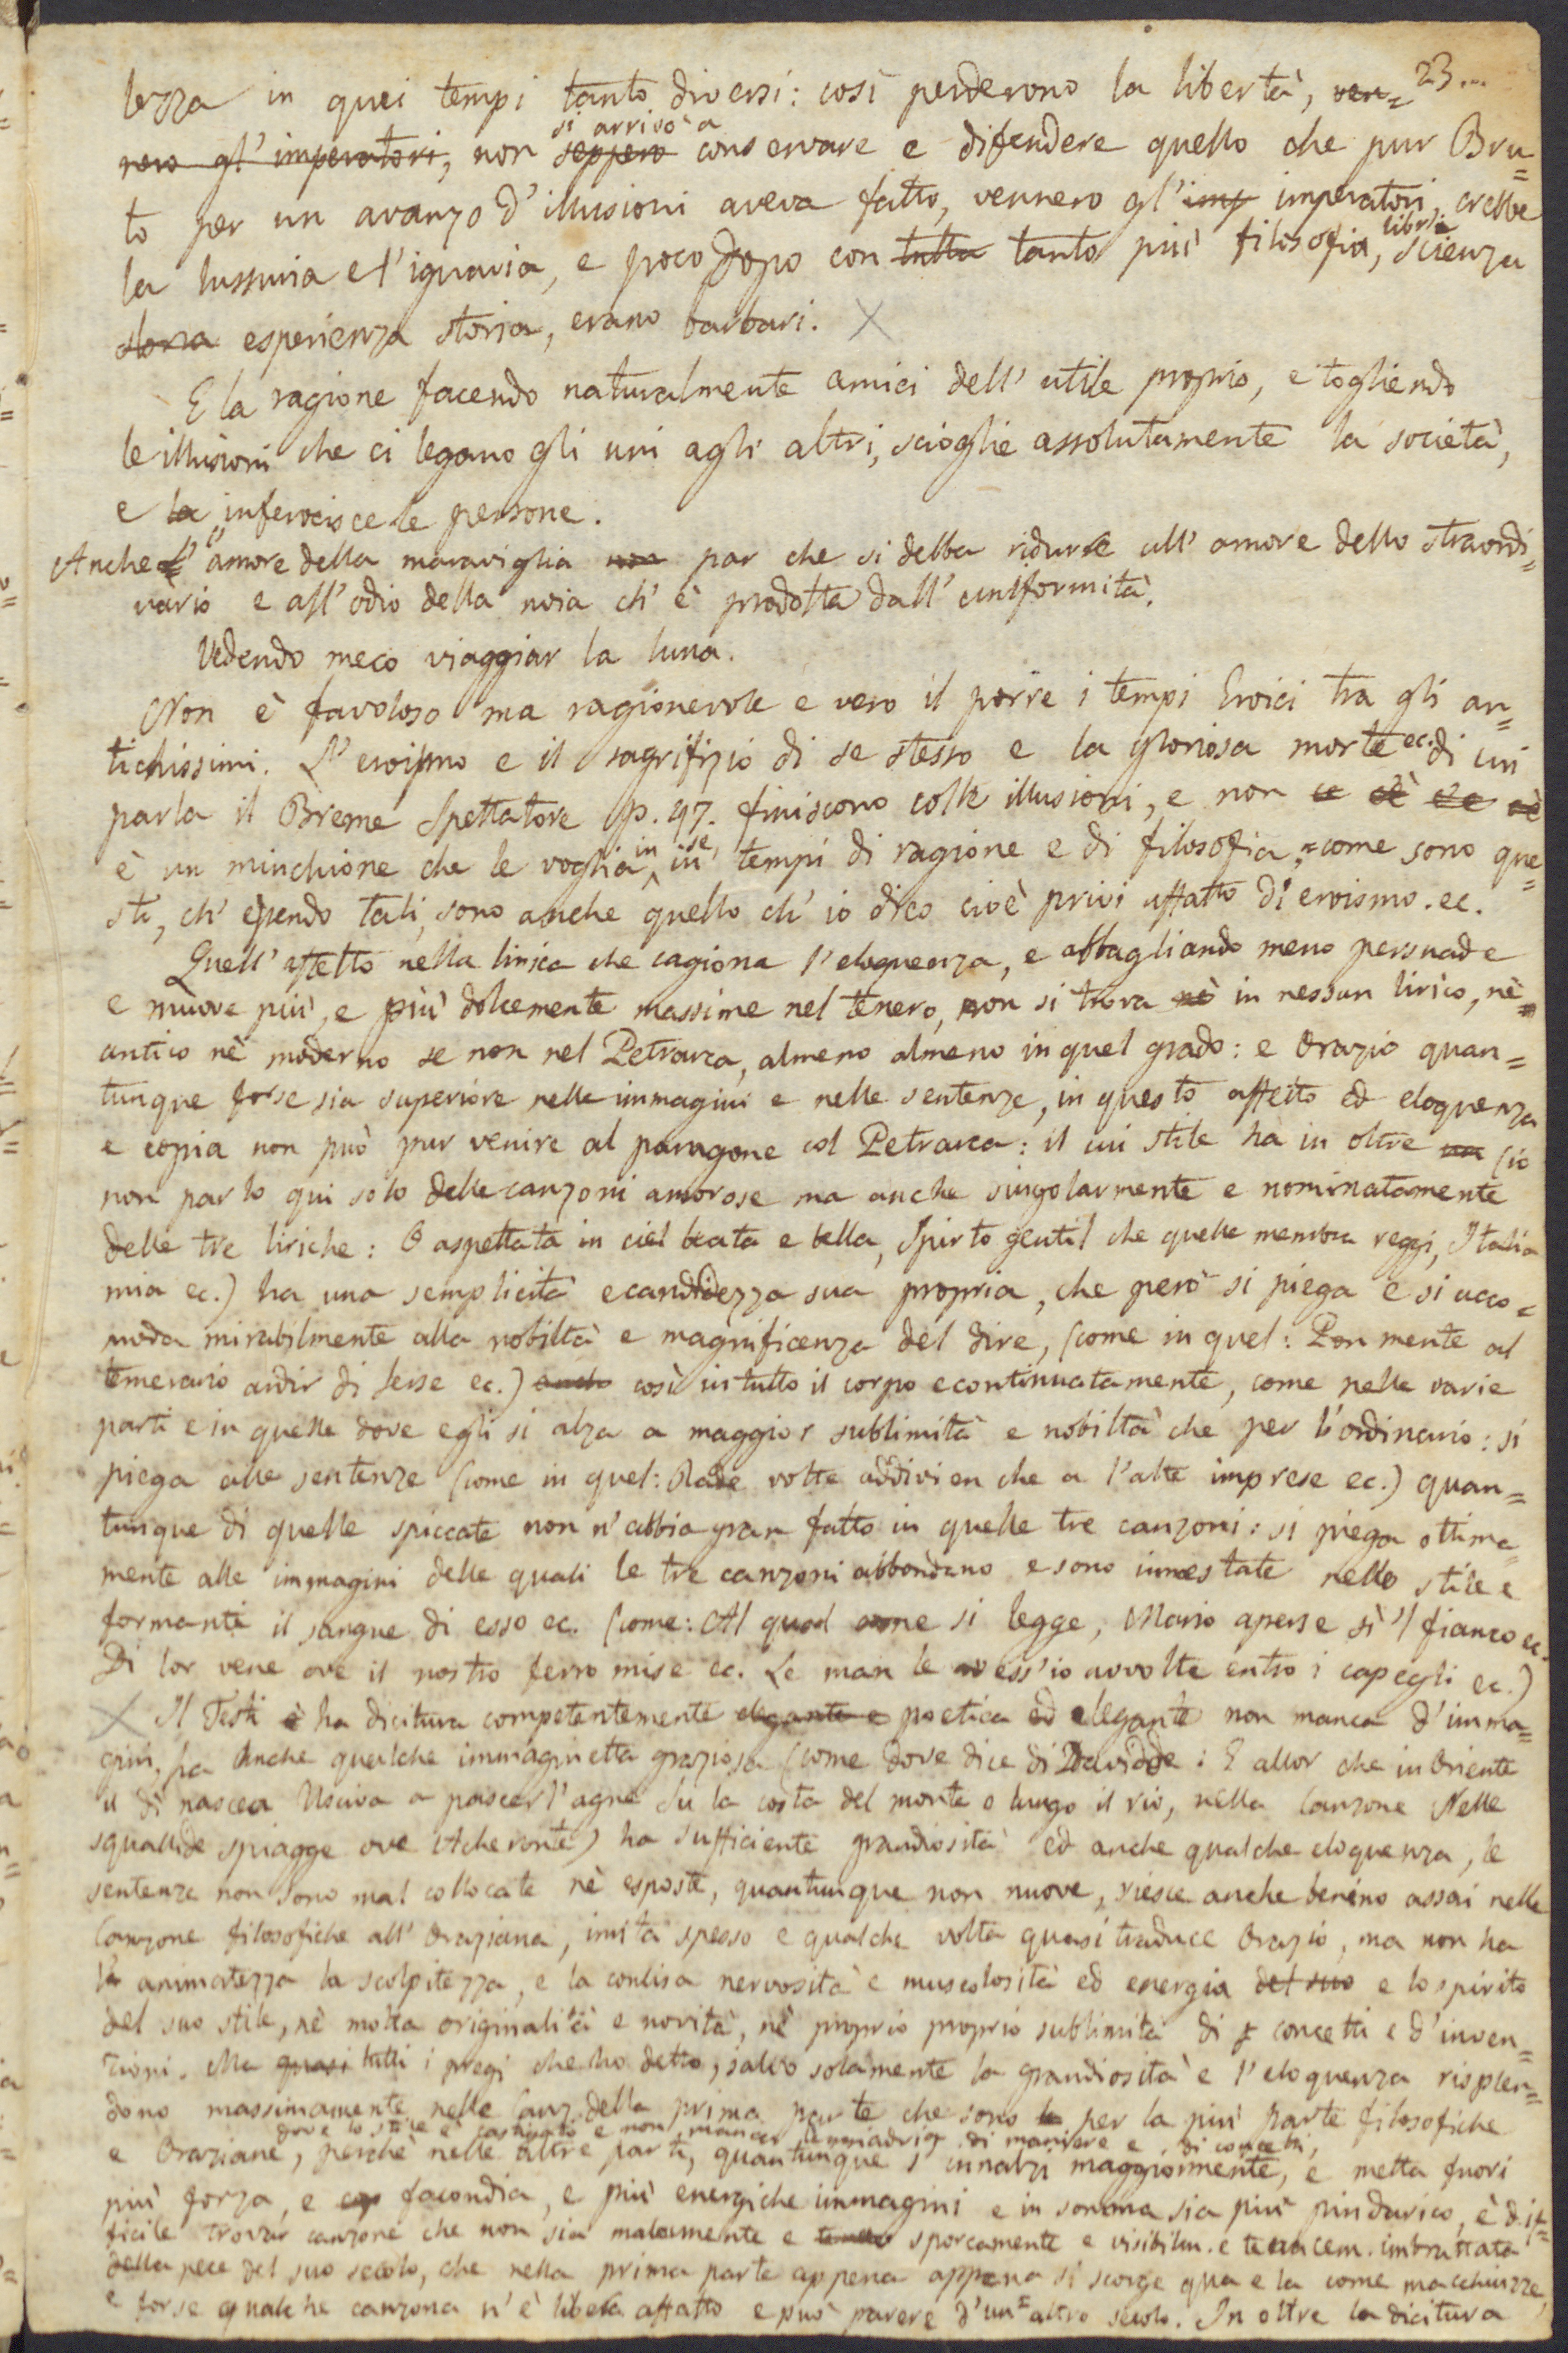 23...
lezza in quei tempi tanto diversi: così perderono la libertà, ven=
nero gl'imperatori, non seppero si arrivò a conservare e difendere quello che pur Bru=
to per un avanzo d'illusioni aveva fatto, vennero gl'imp imperatori, crebbe
la lussuria e l'ignavia, e poco dopo con tutta tanto più filosofia, libri scienza
storia esperienza storia, erano barbari. X
E la ragione facendo naturalmente amici dell'utile proprio, e togliendo
le illusioni che ci legano gli uni agli altri, scioglie assolutamente la società,
e la inferocisce le persone.
Anche l'amore della maraviglia non par che si debba ridurre all'amore dello straordi=
nario e all'odio della noia ch'è prodotta dall'uniformità.
Vedendo meco viaggiar la luna.
Non è favoloso ma ragionevole e vero il porre i tempi Eroici tra gli an=
tichissimi. L'eroismo e il sagrifizio di se stesso e la gloriosa morte ec. di cui
parla il Breme Spettatore p. 47. finiscono colle illusioni, e non ce cè ce cè
è un minchione che le voglia in se, in tempi di ragione e di filosofia, come sono que=
sti, ch'essendo tali, sono anche quello ch'io dico cioè privi affatto di eroismo. ec.
Quell'affetto nella lirica che cagiona l'eloquenza, e abbagliando meno persuade
e muove più, e più dolcemente massime nel tenero, non si trova nè in nessun lirico, nè
antico nè moderno se non nel Petrarca, almeno almeno in quel grado: e Orazio quan=
tunque forse sia superiore nelle immagini e nelle sentenze, in questo affetto ed eloquenza
e copia non può pur venire al paragone col Petrarca: il cui stile ha in oltre una (io
non parlo qui solo delle canzoni amorose ma anche singolarmente e nominatamente
delle tre liriche: O aspettata in ciel beata e bella, Spirto gentil che quelle membra reggi, Italia
mia ec.) ha una semplicità e candidezza sua propria, che però si piega e si acco=
moda mirabilmente alla nobiltà e magnificenza del dire, (come in quel: Pon mente al
temerario ardir di Serse ec.) anche così in tutto il corpo e continuatamente, come nelle varie
parti e in quelle dove egli si alza a maggior sublimità e nobiltà che per l'ordinario: si
piega alle sentenze (come in quel: Rade volte addivien che a l'alte imprese ec.) quan=
tunque di quelle spiccate non n'abbia gran fatto in quelle tre canzoni: si piega ottima=
mente alle immagini delle quali le tre canzoni abbondano e sono innestate nello stile e
formanti il sangue di esso ec. (come: Al qual come si legge, Mario aperse sì 'l fianco ec.
Di lor vene ove il nostro ferro mise ec. Le man le avess'io avvolte entro i capegli ec.)
X Il Testi è ha dicitura competentemente elegante e poetica ed elegante non manca d'imma=
gini, ha anche qualche immaginetta graziosa (come dove dice di Davidde: E allor che in Oriente
il dì nascea Usciva a pascer l'agne Su la costa del monte o lungo il rio, nella Canzone Nelle
squallide spiagge ove Acheronte) ha sufficiente grandiosità ed anche qualche eloquenza, le
sentenze non sono mal collocate nè esposte, quantunque non nuove, riesce anche benino assai nelle
Canzone filosofiche all'Oraziana, imita spesso e qualche volta quasi traduce Orazio, ma non ha
la animatezza la scolpitezza, e la concisa nervosità e muscolosità ed energia del suo e lo spirito
del suo stile, nè molta originalità e novità, nè proprio proprio sublimità di concetti e d'inven=
zioni. Ma quasi tutti i pregi che ho detto, salvo solamente la grandiosità e l'eloquenza risplen=
dono massimamente nelle Canz. della prima parte che sono le per la più parte filosofiche
dove lo stile è castigato e non manca lemmadria di maniere e di concetti,
e Oraziane, perchè nelle altre parti, quantunque s'innalzi maggiormente, e metta fuori
più forza, e cop facondia, e più energiche immagini e in somma sia più pindarico, è dif=
ficile trovar canzone che non sia malamente e sporcamente e visibilm. e tenacem. imbrattata
della pece del suo secolo, che nella prima parte appena appena si scorge qua e la come macchiuzze,
e forse qualche canzona n'è libera affatto e può parere d'un altro secolo. In oltre la dicitura